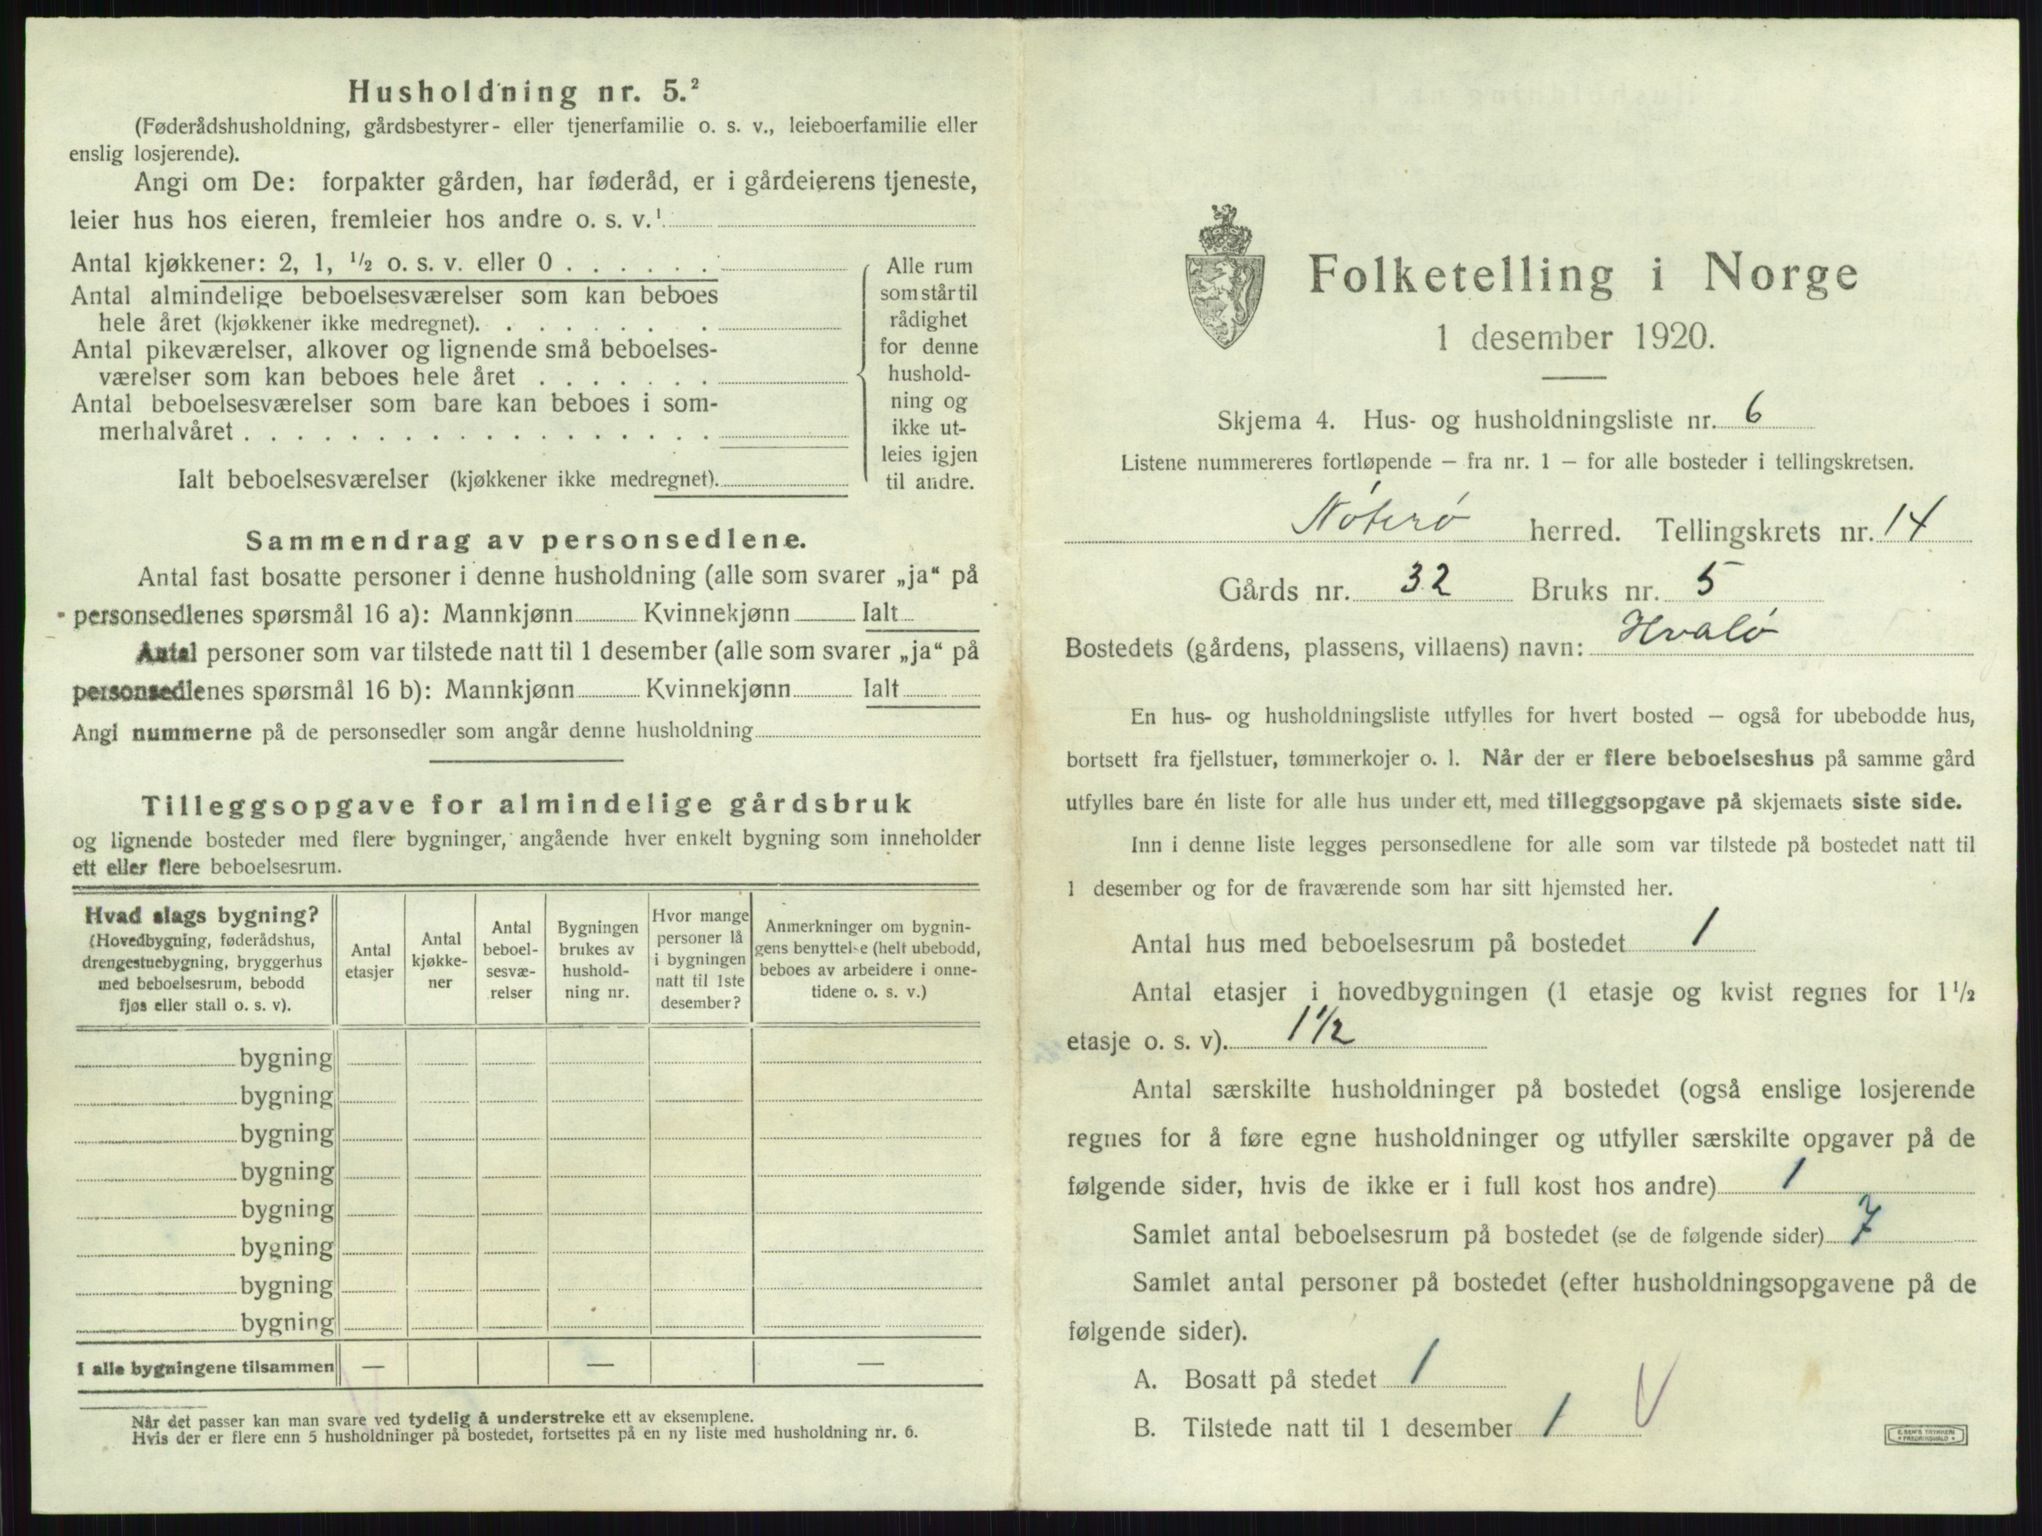 Husholdning nr. 5.²
(Føderådshusholdning, gårdsbestyrer- eller tjenerfamilie o. s. v., leieboerfamilie eller
enslig losjerende).
Angi om De: forpakter gården, har føderåd, er i gårdeierens tjeneste,
leier hus hos eieren, fremleier hos andre o. s. v.¹
Antal kjøkkener: 2, 1, 1/2 o. s. v. eller 0 . . . . . .
Antal almindelige beboelsesværelser som kan beboes
hele året (kjøkkener ikke medregnet). . . . . . . .
Antal pikeværelser, alkover og lignende små beboelses-
værelser som kan beboes hele året . . . . . . .
Antal beboelsesværelser som bare kan beboes i som-
merhalvåret . . . . . . . . . . . . . . . . . .
Ialt beboelsesværelser (kjøkkener ikke medregnet).
Alle rum
som står til
rådighet
for denne
hushold-
ning og
ikke ut-
leies igjen
til andre.
Sammendrag av personsedlene.
Antal fast bosatte personer i denne husholdning (alle som svarer „ja“ på
personsedlenes spørsmål 16 a): Mannkjønn Kvinnekjønn Ialt
Antal personer som var tilstede natt til 1 desember (alle som svarer „ja“ på
personsedlenes spørsmål 16 b): Mannkjønn Kvinnekjønn Ialt
Angi nummerne på de personsedler som angår denne husholdning
Tilleggsopgave for almindelige gårdsbruk
og lignende bosteder med flere bygninger, angående hver enkelt bygning som inneholder
ett eller flere beboelsesrum.
Hvad slags bygning?
(Hovedbygning, føderådshus,
drengestuebygning, bryggerhus
med beboelsesrum, bebodd
fjøs eller stall o. s. v).
Antal
etasjer
Antal
kjøkke-
ner
Antal
beboel-
sesvæ-
relser
Bygningen
brukes av
hushold-
ning nr.
Hvor mange
personer lå
i bygningen
natt til 1ste
desember?
Anmerkninger om bygnin-
gens benyttelse (helt ubebodd,
beboes av arbeidere i onne-
tidene o. s. v.)
bygning
bygning
bygning
bygning
bygning
bygning
bygning
bygning
I alle bygningene tilsammen — — —
Når det passer kan man svare ved tydelig å understreke ett av eksemplene.
Hvis der er flere enn 5 husholdninger på bostedet, fortsettes på en ny liste med husholdning nr. 6.
Folketelling i Norge
1 desember 1920.
Skjema 4. Hus- og husholdningsliste nr. 6
Listene nummereres fortløpende — fra nr. 1 — for alle bosteder i tellingskretsen.
Nøterø herred. Tellingskrets nr. 14
Gårds nr. 32 Bruks nr. 5
Bostedets (gårdens, plassens, villaens) navn: Hvalø
En hus- og husholdningsliste utfylles for hvert bosted — også for ubebodde hus,
bortsett fra fjellstuer, tømmerkojer o. l. Når der er flere beboelseshus på samme gård
utfylles bare én liste for alle hus under ett, med tilleggsopgave på skjemaets siste side.
Inn i denne liste legges personsedlene for alle som var tilstede på bostedet natt til
1 desember og for de fraværende som har sitt hjemsted her.
Antal hus med beboelsesrum på bostedet 1
Antal etasjer i hovedbygningen (1 etasje og kvist regnes for 1 1/2
etasje o. s. v). 1 1/2
Antal særskilte husholdninger på bostedet (også enslige losjerende
regnes for å føre egne husholdninger og utfyller særskilte opgaver på de
følgende sider, hvis de ikke er i full kost hos andre) 1
Samlet antal beboelsesrum på bostedet (se de følgende sider) 7
Samlet antal personer på bostedet (efter husholdningsopgavene på de
følgende sider).
A. Bosatt på stedet 1
B. Tilstede natt til 1 desember 1